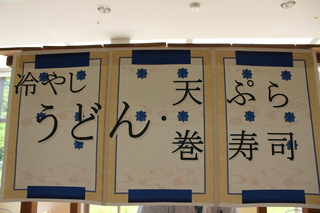 冷やし
うどん・天ぷら
巻寿司